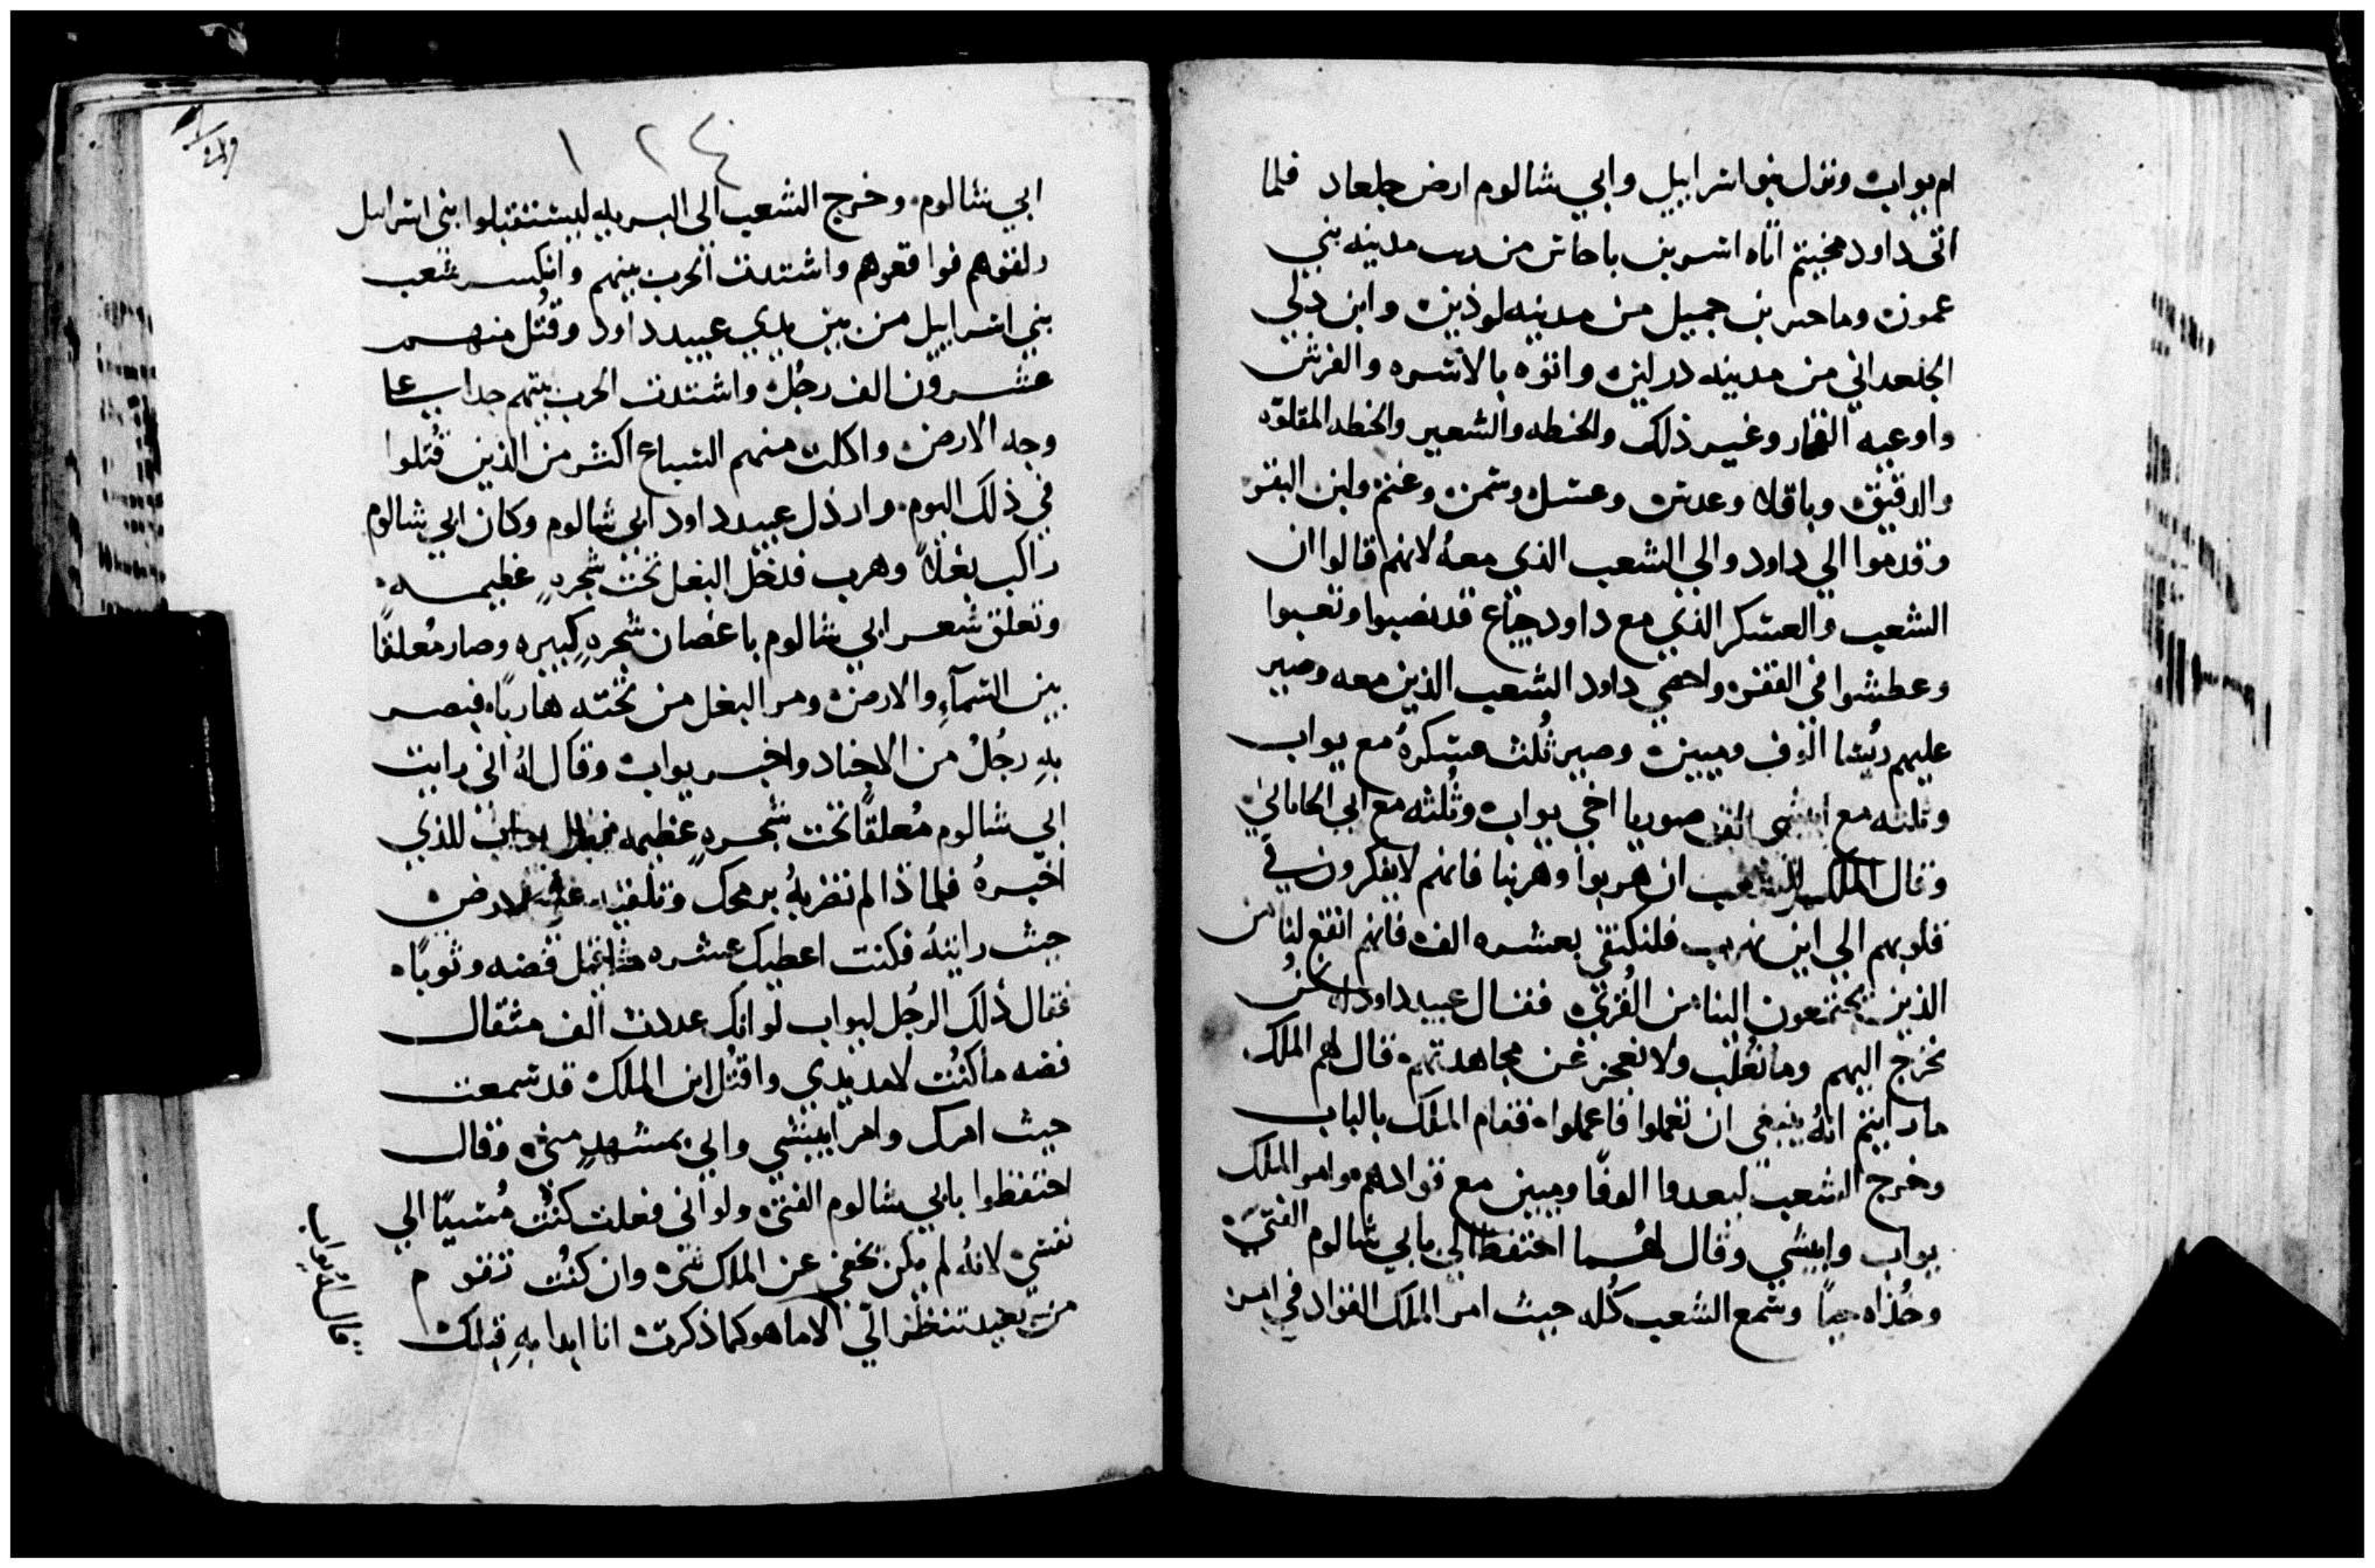 ام يواب ونزل بنو اسراييل وابي شالوم ارض جلعاد فلما
اتى داود مخيتم اتاه اسر بن باحاش من مدينه بني
عمون وماحير بن جميل من مدينه لوذين وابن دلي
الجلعداني من مدينه درلين واتوه بالاسره والفرش
واوعيه الفخار وغير ذلك والحنطه والشعير والحنطه المقلوه
والدقيق وباقلا وعدس وعسل وسمن وغنم ولبن البقر
وقدموا الي داود والي الشعب الذي معه لانهم قالوا ان
الشعب والعسكر الذي مع داود جياع قد نصبوا وتعبوا
وعطشوا في القفر واحصي داود الشعب الذين معه وصير
عليهم ريسا الوف وميين وصير ثلث عسكره مع يواب
وثلثه مع ابيشي ابن صوريا اخي يواب وثلثه مع اتي الحاناني
وقال الملك للشعب ان هربوا وهربنا فانهم لا يفكرون في
قلوبهم الي اين نهرب فلنكتفي بعشره الف فانهم انفع لنا من
الذين يجتمعون الينا من القري فقال عبيد داود لكن
نخرج اليهم وما نغلب ولا نعجز عن مجاهدتهم قال لهم الملك
ما رايتم انه ينبغي ان تعملوا فاعملوا فقام الملك بالباب
وخرج الشعب ليعدوا الوفا وميين مع قوادهم وامر الملك
يواب وابيشي وقال لهما احتفظا لي بابي شالوم الفتى
وخذاه حيا وسمع الشعب كله حيث امر الملك القواد في امر
١٢٤
ابي شالوم وخرج الشعب الى البريه ليستقبلوا بني اسراييل
ولقوهم فواقعوهم واشتدت الحرب بينهم وانكسر شعب
بني اسراييل من بين يدي عبيد داود وقتل منهم
عشرون الف رجل واشتدت الحرب بينهم جدا علي
وجه الارض واكلت منهم السباع اكثر من الذين قتلوا
في ذلك اليوم وارذل عبيد داود ابي شالوم وكان ابي شالوم
راكب بغلا وهرب فدخل البغل تحت شجره عظيمه
وتعلق شعر ابي شالوم باغصان شجره كبيره وصار معلقا
بين السمآء والارض ومر البغل من تحته هاربا فبصر
به رجل من الاجناد واخبر يواب وقال له اني رايت
ابي شالوم معلقا تحت شجره عظيمه فقال يواب للذي
اخبره فلماذا لم تضربه برمحك وتلقيه علي الارض
حيث رايته فكنت اعطيك عشره مثاقيل فضه وثوبا
فقال ذلك الرجل ليواب لو انك عددت الف مثقال
فضه ما كنت لامد يدي واقتل ابن الملك قد سمعت
حيث امرك وامر ابيشي واتي بمشهد مني وقال
احتفظوا بابي شالوم الفتى ولو اني فعلت كنت مسيا الي
نفسي لانه لم يكن يخفي عن الملك شي وان كنت تقوم
من بعيد تنظر الي الاما هو كما ذكرت انا ابدا به قبلك
قال له يواب